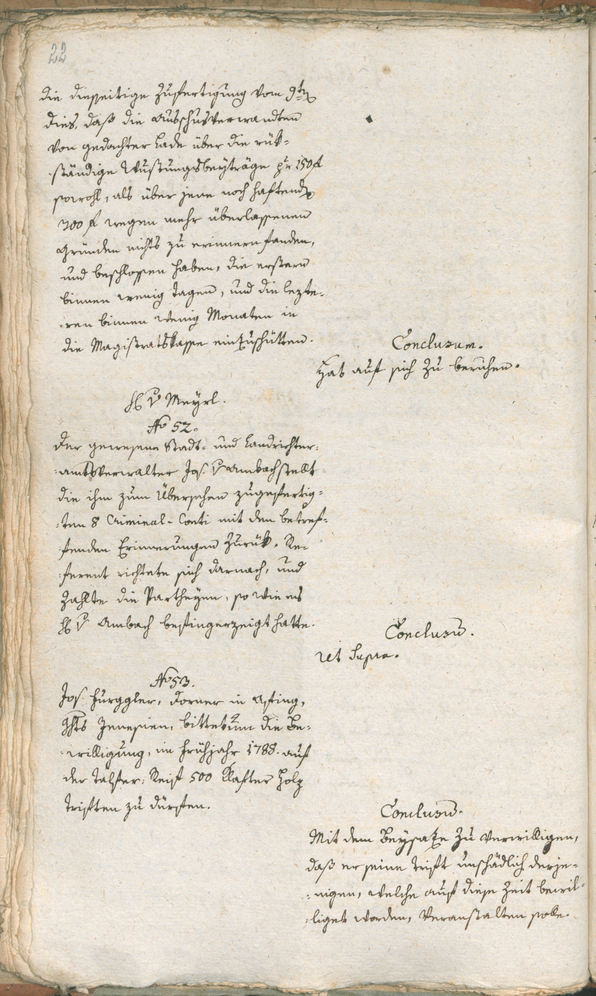 22
die diesseitige Zufertigung vom 9ten
dies, daß die Ausschusverwandten
von gedachter Lade über die rük-
ständige Wustungsbeyträge pr 150 f
sowohl, als über jene noch haftende
700 f wegen mehr überlassenen
Gründen nichts zu erinnern fanden,
und beschlossen haben, die erstern
binnen wenig Tagen, und die lezte-
ren binnen wenig Monaten in
die Magistratskasse einzuschütten.
Conclusum.
Hat auf sich zu beruhen.
H v Meyrl.
No 52.
Der gewesene Stadt- und Landrichter-
amtsverwalter Jos. v Ambach stellt
die ihm zum Übersehen zugefertig-
ten 8 Criminal-Conti mit den betref-
fenden Erinnerungen zurük. Re-
ferent richtete sich darnach, und
zahlte die Partheyen, so wie es
H v Ambach hatte.
Conclusum.
Ut Supra.
No 53.
Jos. Hürggler, Torner in Afing,
Ghts Jenesien, bittet um die Be-
willigung, im Frühjahr 1788. auf
der Talfer Reift 500 Klafter Holz
triften zu dürfen.
Conclusum.
Mit dem Beysatze zu verwilligen,
daß er seine Trift unschädlich derje-
nigen, welche auf diese Zeit bewil-
liget worden, veranstalten solle.